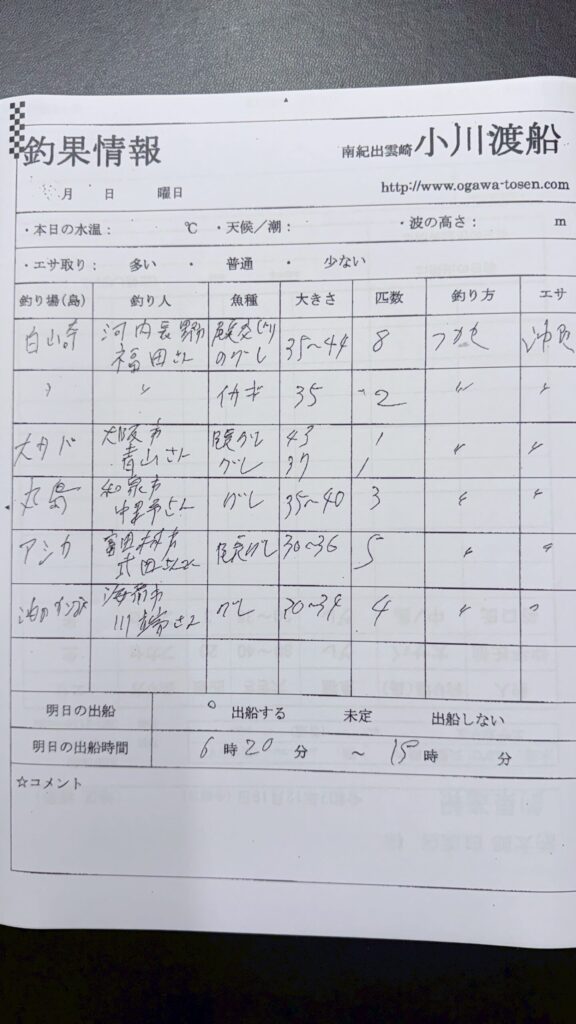 釣果情報
南紀出雲崎 小川渡船
月 日 曜日
http://www.ogawa-tosen.com
・本日の水温: ℃ ・天候／潮: ・波の高さ: m
・エサ取り: 多い ・ 普通 ・ 少ない
釣り場(島) 釣り人 魚種 大きさ 匹数 釣り方 エサ
白山 河内長野 福田さん のグレ 35～44 8 フカセ
〃 〃 イガギ 35 2 〃 〃
大阪市 青山さん グレ 43 1 〃 〃
グレ 37 1
丸島 和泉市 さん グレ 35～40 3 〃 〃
アシカ 富田林市 グレ 30～36 5 〃 〃
海南市 川端さん グレ 20～34 4 〃 〃
明日の出船 ○ 出船する 未定 出船しない
明日の出船時間 6時20分 ～ 15時 分
☆コメント